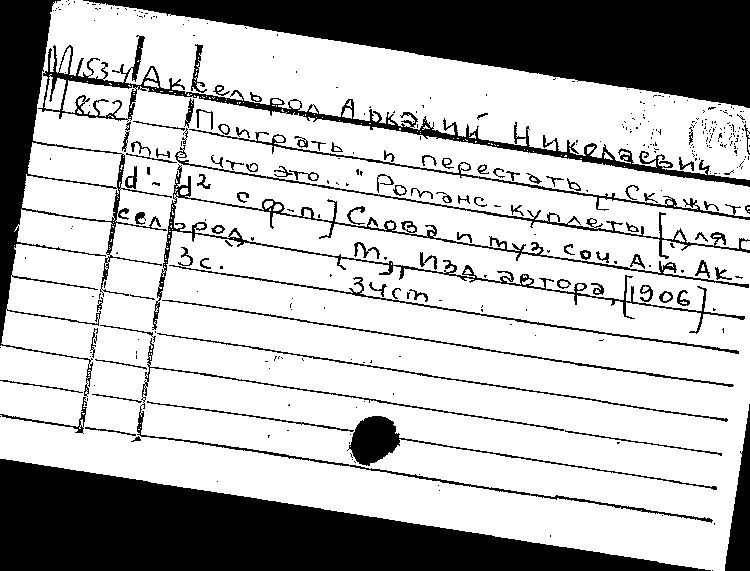 М 153-4 Аксельрод Аркадий Николаевич
852 Поиграть и перестать. [„Скажите
мне что это..." Романс-куплеты [для г
d¹- d² с ф-п.] Слова и муз. соч. А.Н. Ак-
сельрод. М., Изд. автора, [1906].
3 с. 34см.